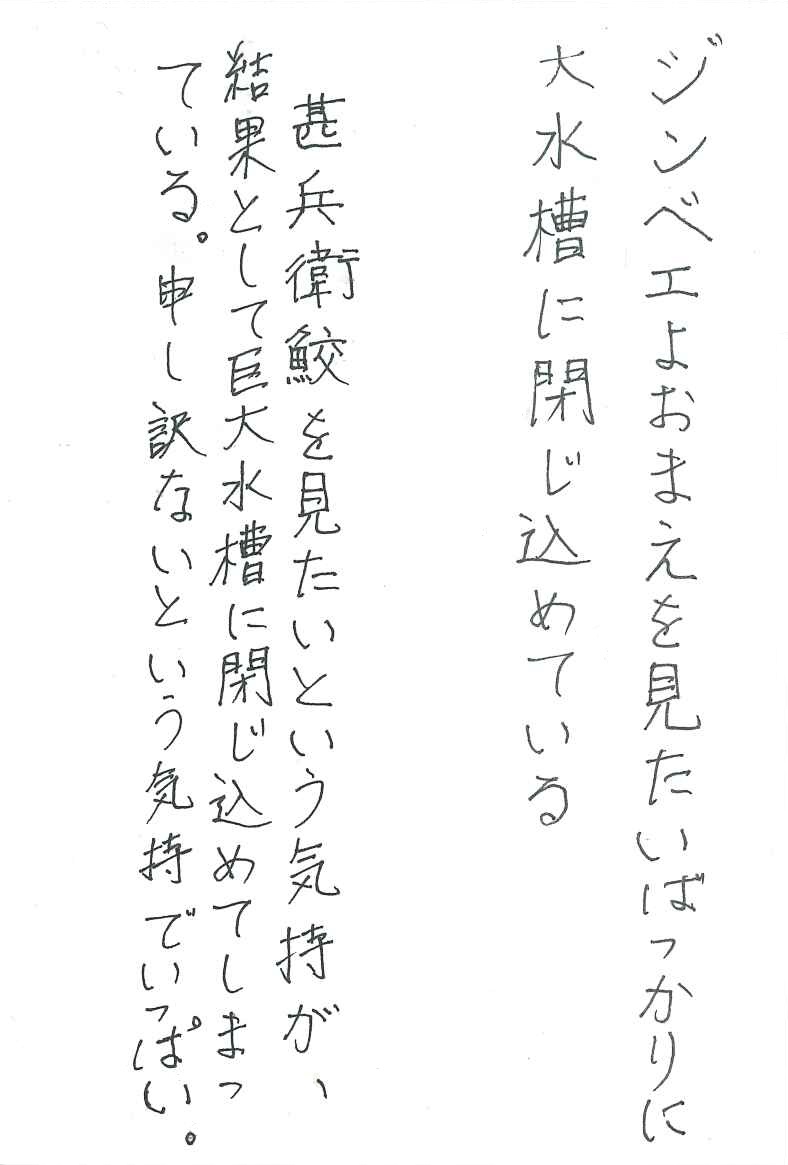 ジンベエよおまえを見たいばっかりに
大水槽に閉じ込めている
甚兵衛鮫を見たいという気持が、
結果として巨大水槽に閉じ込めてしまっ
ている。申し訳ないという気持でいっぱい。